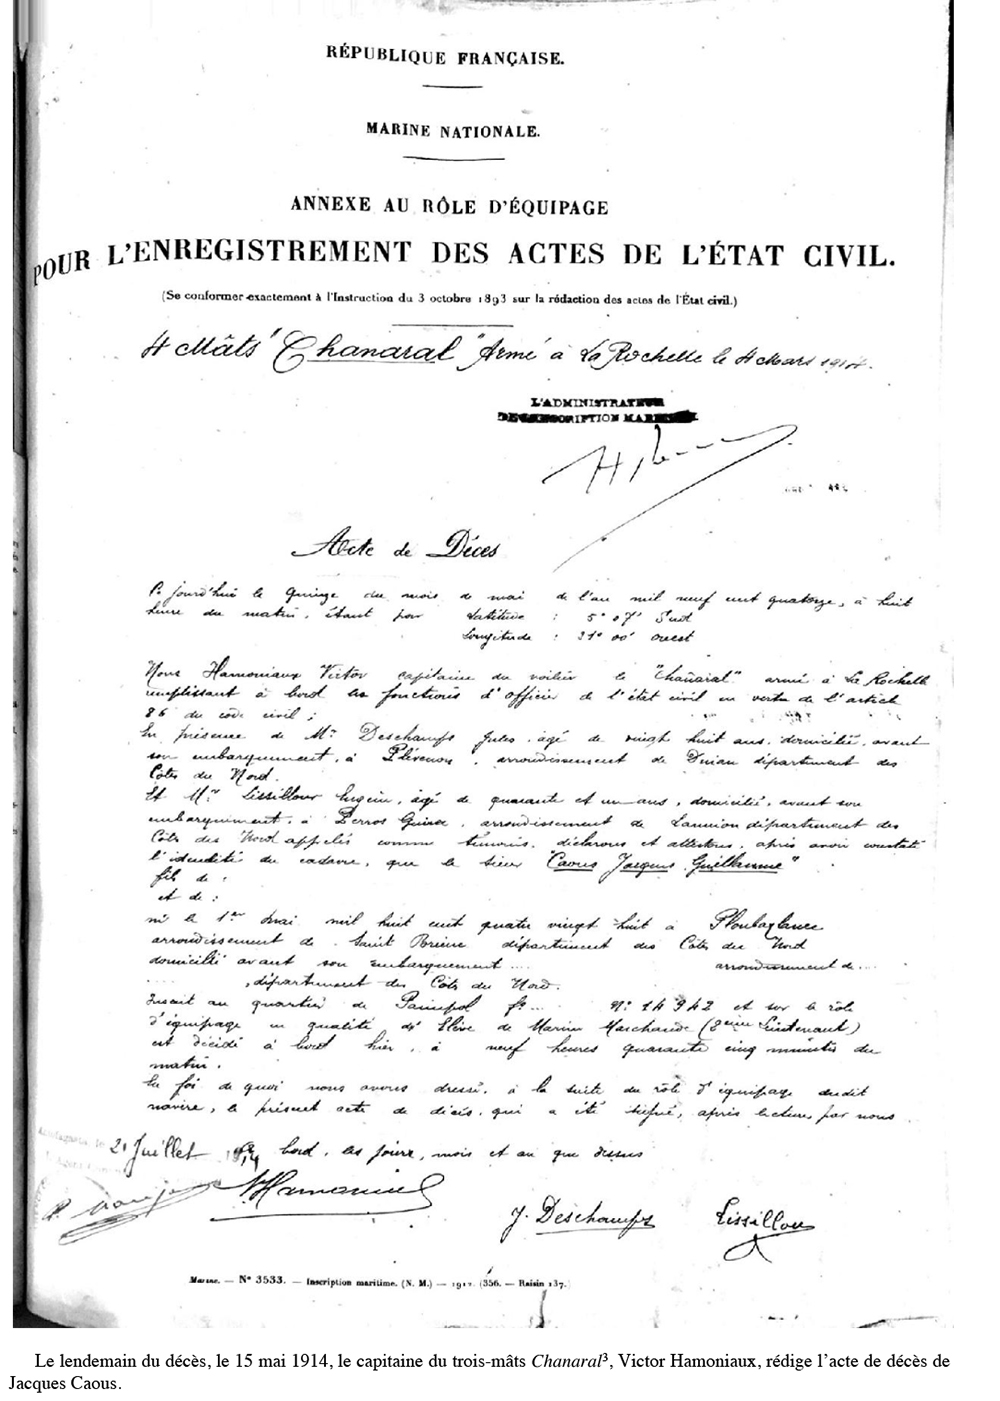 RÉPUBLIQUE FRANÇAISE.
MARINE NATIONALE.
ANNEXE AU RÔLE D'ÉQUIPAGE
POUR L'ENREGISTREMENT DES ACTES DE L'ÉTAT CIVIL.
(Se conformer exactement à l'Instruction du 3 octobre 1893 sur la rédaction des actes de l'État civil.)
4 Mâts "Chanaral" Armé à La Rochelle le 4 Mars 1914.
L'ADMINISTRATEUR
Acte de Décès
Ce jourd'hui le Quinze du mois de mai de l'an mil neuf cent quatorze, à huit
heure du matin, étant par Latitude : 5° 07' Sud
Longitude : 31° 00' ouest
Nous Hamoniaux Victor capitaine du voilier le "Chañaral" armé à La Rochelle
remplissant à bord les fonctions d'officier de l'état civil en vertu de l'article
86 du code civil ;
En présence de Mr Deschamps Jules, âgé de vingt huit ans, domicilié, avant
son embarquement, à Plévenon, arrondissement de Dinan département des
Côtes du Nord.
Et Mr Lissillour Eugein, âgé de quarante et un ans, domicilié, avant son
embarquement, à Perros Guirec, arrondissement de Lannion département des
Côtes des Nord appelés comme témoins, déclarons et attestons, après avoir constaté
l'idendité du cadavre, que le sieur "Caous Jacques Guillaume"
fils de :
et de :
né le 1er Mai mil huit cent quatre vingt huit à Ploubazlanec
arrondissement de Saint Brieuc département des Côtes du Nord
domicilié avant son embarquement .... arrondissement de ...
...., département des Côtes du Nord.
Inscrit au quartier de Paimpol fo... No 14942 et sur le rôle
d'équipage en qualité d'Elève de Marine Marchande (2ème Lieutenant)
est décidé à bord hier, à neuf heures quarante cinq minutes du
matin.
En foi de quoi nous avons dressé, à la suite du rôle d'équipage dudit
navire, le présent acte de décès, qui a été signé, après lecture, par nous
21 Juillet 1914 bord, les jours, mois et an que dessus
VHamoniaux
J. Deschamps Lissillou
Marine. — N° 3533. — Inscription maritime. (N. M.) — 1912. (356. — Raisin 137.)
Le lendemain du décès, le 15 mai 1914, le capitaine du trois-mâts Chanaral³, Victor Hamoniaux, rédige l'acte de décès de
Jacques Caous.